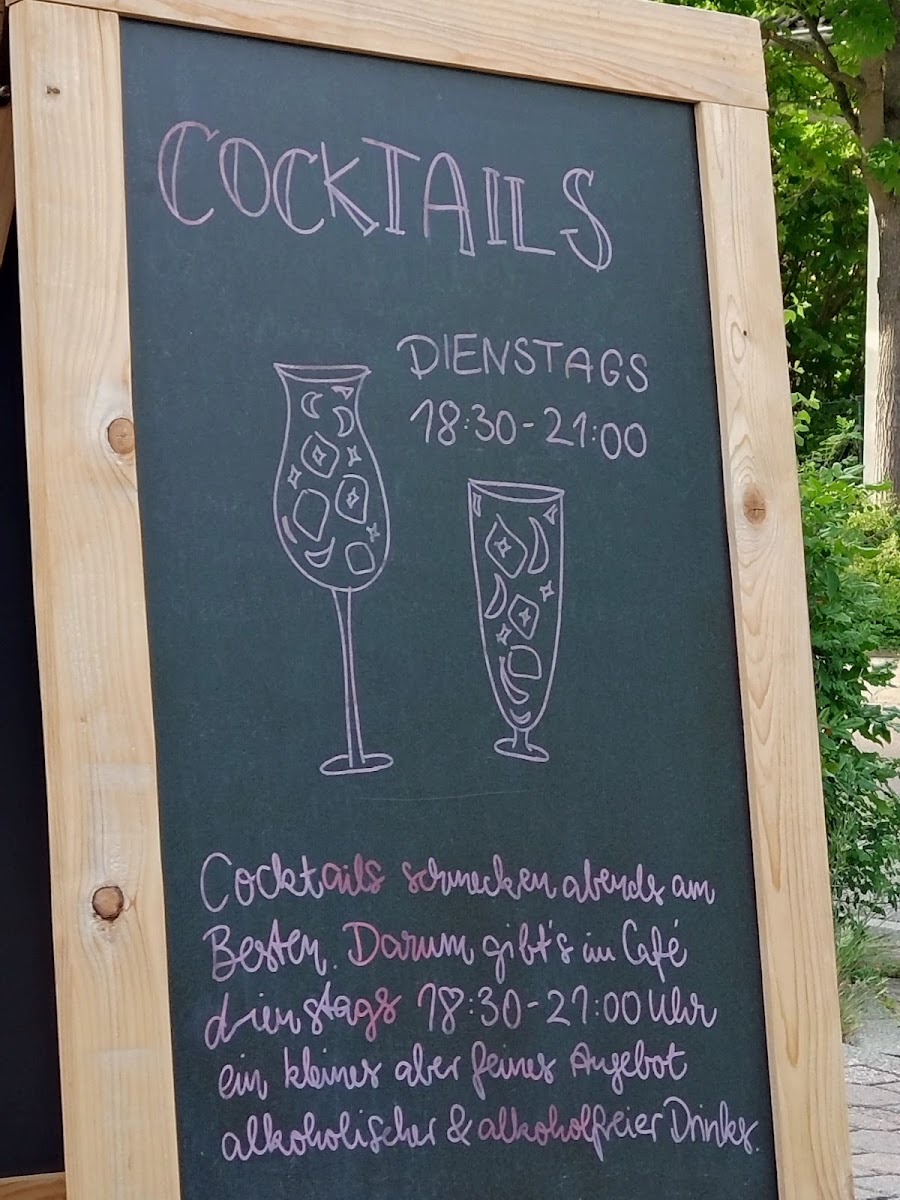 COCKTAILS
DIENSTAGS
18:30-21:00
Cocktails schmecken abends am
Besten. Darum gibt's im Café
dienstags 18:30-21:00 Uhr
ein kleines aber feines Angebot
alkoholischer & alkoholfreier Drinks.